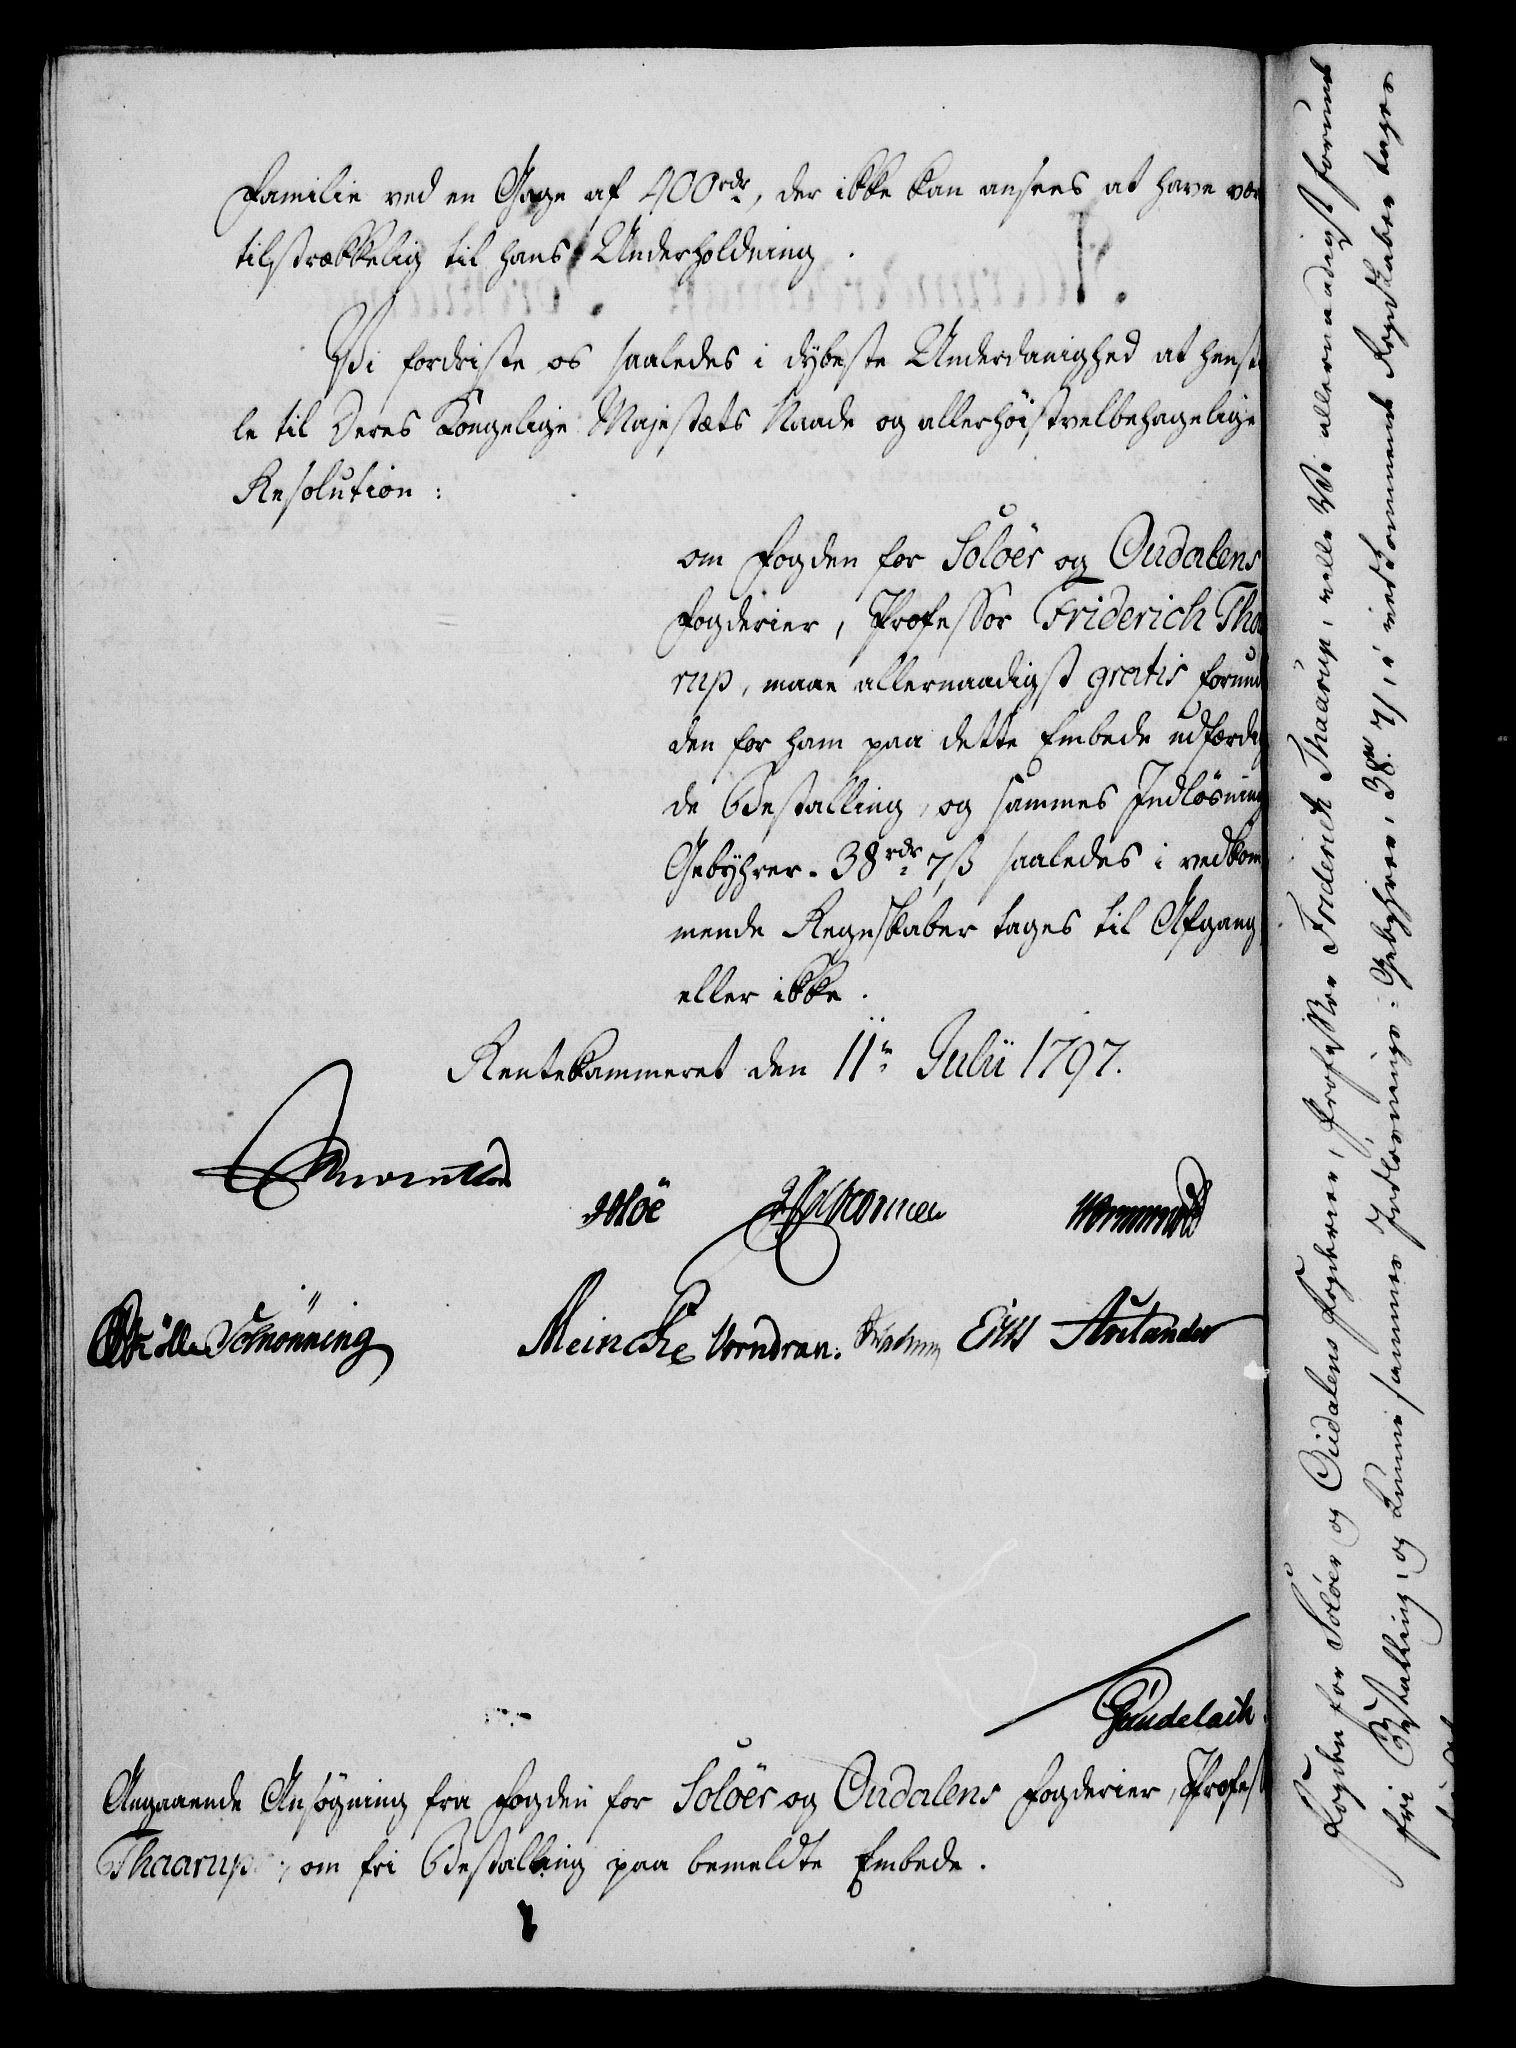 Familie ved en Gage af 400 rdr, der ikke kan ansees at have vær
tilstrækkelig til hans Underholdning.
Vi fordriste os saaledes i dybeste Underdanighed at henstil
le til Deres Kongelige Majestæts Naade og allerhöistvelbehagelige
Resolution:
om Fogden for Soloër og Oudalens
Fogderier, Professor Friderich Thaa
rup, maae allernaadigst gratis forun
den for ham paa dette Embede udfærdig
de Bestalling, og sammes Indlösning
Gebyhrer. 38 rdr 7 ß saaledes i vedkom
mende Regnskaber tages til Afgang,
eller ikke.
Rentekammeret den 11te Julii 1797.
Schönning
Meincke Vorndran.
Gündelach.
Angaaende Ansögning fra Fogden for Soloër og Oudalens Fogderier, Profess
Thaarup, om fri Bestalling paa bemeldte Embede.
Fogden for Soloër og Oudalens Fogderier, Professor Friderich Thaarup, ville Vi allernaadigst forunt
fri Bestalling, og kunne sammes Indlösnings-Gebyhrer, 38 rd 7 ß, i vedkommende Regnskaber tages